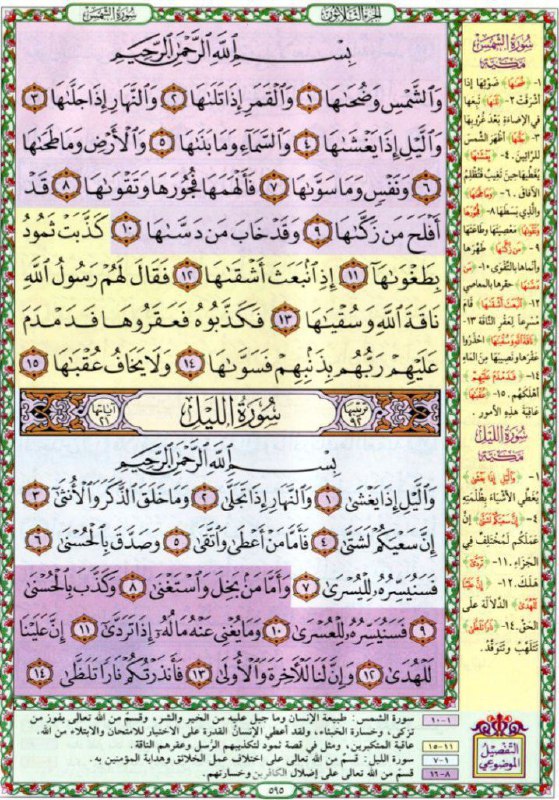 سورة الشمس
الجزء الثلاثون
بِسْمِ اللَّهِ الرَّحْمَٰنِ الرَّحِيمِ
وَالشَّمْسِ وَضُحَىٰهَا ١ وَالْقَمَرِ إِذَا تَلَىٰهَا ٢ وَالنَّهَارِ إِذَا جَلَّىٰهَا ٣
وَالَّيْلِ إِذَا يَغْشَىٰهَا ٤ وَالسَّمَآءِ وَمَا بَنَىٰهَا ٥ وَالْأَرْضِ وَمَا طَحَىٰهَا
٦ وَنَفْسٍ وَمَا سَوَّىٰهَا ٧ فَأَلْهَمَهَا فُجُورَهَا وَتَقْوَىٰهَا ٨ قَدْ
أَفْلَحَ مَن زَكَّىٰهَا ٩ وَقَدْ خَابَ مَن دَسَّىٰهَا ١٠ كَذَّبَتْ ثَمُودُ
بِطَغْوَىٰهَآ ١١ إِذِ انۢبَعَثَ أَشْقَىٰهَا ١٢ فَقَالَ لَهُمْ رَسُولُ اللَّهِ
نَاقَةَ اللَّهِ وَسُقْيَٰهَا ١٣ فَكَذَّبُوهُ فَعَقَرُوهَا فَدَمْدَمَ
عَلَيْهِمْ رَبُّهُم بِذَنۢبِهِمْ فَسَوَّىٰهَا ١٤ وَلَا يَخَافُ عُقْبَٰهَا ١٥
ترتيبها ٩٢ سُورَةُ اللَّيْلِ آياتها ٢١
بِسْمِ اللَّهِ الرَّحْمَٰنِ الرَّحِيمِ
وَالَّيْلِ إِذَا يَغْشَىٰ ١ وَالنَّهَارِ إِذَا تَجَلَّىٰ ٢ وَمَا خَلَقَ الذَّكَرَ وَالْأُنثَىٰٓ ٣
إِنَّ سَعْيَكُمْ لَشَتَّىٰ ٤ فَأَمَّا مَنْ أَعْطَىٰ وَاتَّقَىٰ ٥ وَصَدَّقَ بِالْحُسْنَىٰ ٦
فَسَنُيَسِّرُهُۥ لِلْيُسْرَىٰ ٧ وَأَمَّا مَنۢ بَخِلَ وَاسْتَغْنَىٰ ٨ وَكَذَّبَ بِالْحُسْنَىٰ
٩ فَسَنُيَسِّرُهُۥ لِلْعُسْرَىٰ ١٠ وَمَا يُغْنِى عَنْهُ مَالُهُۥٓ إِذَا تَرَدَّىٰٓ ١١ إِنَّ عَلَيْنَا
لَلْهُدَىٰ ١٢ وَإِنَّ لَنَا لَلْآخِرَةَ وَالْأُولَىٰ ١٣ فَأَنذَرْتُكُمْ نَارًا تَلَظَّىٰ ١٤
سورة الشمس
مكية
١- ﴿ضحاها﴾ ضَوْئِهَا إذا
أشرقت ٢- ﴿تلاها﴾ تبعها
في الإضاءة بعد غروبها
٣- ﴿جلاها﴾ أظهر الشمس
للرائين. ٤- ﴿يغشاها﴾
يغطيها حين تغيب فتظلم
الآفاق. ٦- ﴿وما طحاها﴾
والذي بسطها ٨- ﴿فجورها
وتقواها﴾ معصيتها وطاعتها
٩- ﴿من زكاها﴾ طهرها
وأنماها بالتقوى ١٠- ﴿من
دساها﴾ حقرها بالمعاصي
١٢- ﴿انبعث أشقاها﴾ قام
مسرعا لعقر الناقة ١٣-
﴿ناقة الله وسقياها﴾ احذروا
عقرها ونصيبها من الماء
١٤- ﴿فدمدم عليهم﴾
أهلكهم. ١٥- ﴿عقباها﴾
عاقبة هذه الأمور.
سورة الليل
مكية
١- ﴿والليل إذا يغشى﴾
يغطي الأشياء بظلمته
٤- ﴿إن سعيكم لشتى﴾ إن
عملكم لمختلف في
الجزاء. ١١- ﴿تردى﴾
هلك. ١٢- ﴿إن علينا
للهدى﴾ الدلالة على
الحق. ١٤- ﴿نارا تلظى﴾
تتلهب وتتوقد.
التفصيل الموضوعي
١-١٠ سورة الشمس: طبيعة الإنسان وما جبل عليه من الخير والشر، وقسم من الله تعالى بفوز من
تزكى، وخسارة الخبثاء، ولقد أعطي الإنسان القدرة على الاختيار للامتحان والابتلاء من الله.
١١-١٥ عاقبة المتكبرين، ومثل في قصة ثمود لتكذيبهم الرسل وعقرهم الناقة.
١-٧ سورة الليل: قسم من الله تعالى على اختلاف عمل الخلائق وهداية المؤمنين به.
٨-١٦ قسم من الله تعالى على إضلال الكافرين وخسارتهم.
٥٩٥